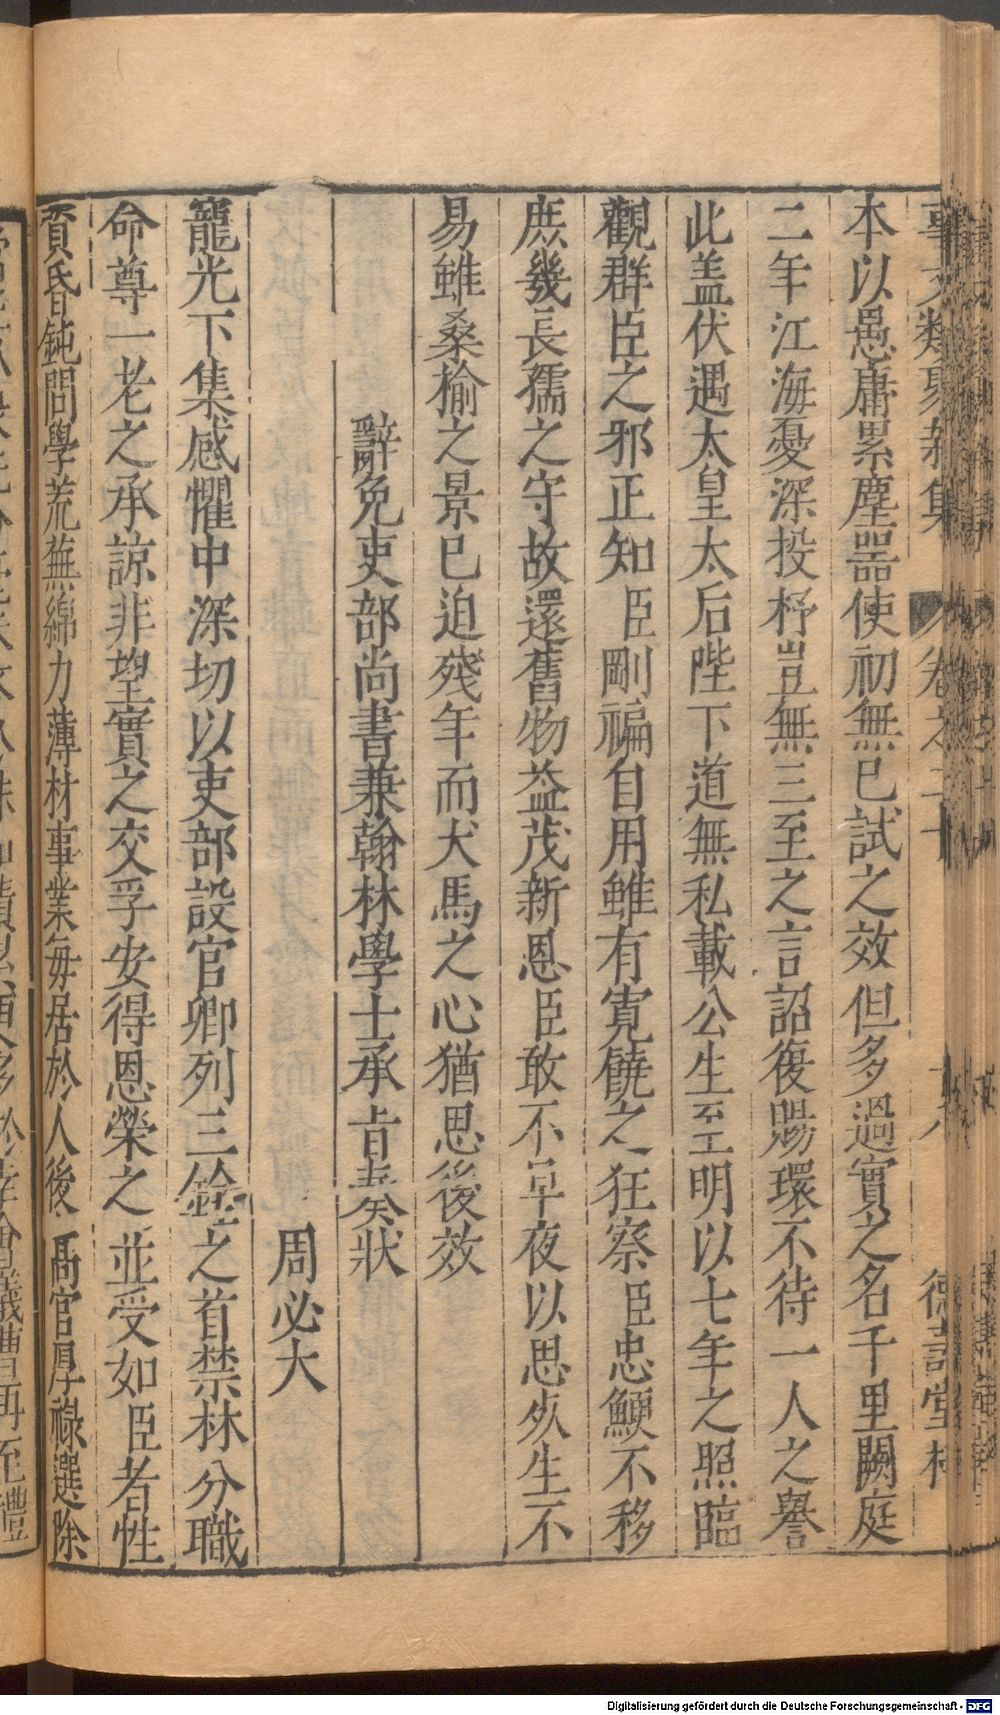 事文類聚新集 卷之二十 十八 德壽堂梓
本以愚庸累塵器使初無已試之效但多過實之名千里闕庭
二年江海憂深投杼豈無三至之言詔復賜環不待一人之譽
此盖伏遇太皇太后陛下道無私載公生至明以七年之照臨
觀群臣之邪正知臣剛褊自用雖有寬饒之狂察臣忠鯁不移
庶幾長孺之守故還舊物益茂新恩臣敢不早夜以思死生不
易雖桑榆之景已迫殘年而犬馬之心猶思後效
辭免吏部尚書兼翰林學士承旨奏狀
周必大
寵光下集感懼中深切以吏部設官卿列三銓之首禁林分職
命尊一老之承諒非望實之交孚安得恩榮之並受如臣者性
質昏鈍問學荒蕪綿力薄材事業每居於人後高官厚祿選除
Digitalisierung gefördert durch die Deutsche Forschungsgemeinschaft - DFG